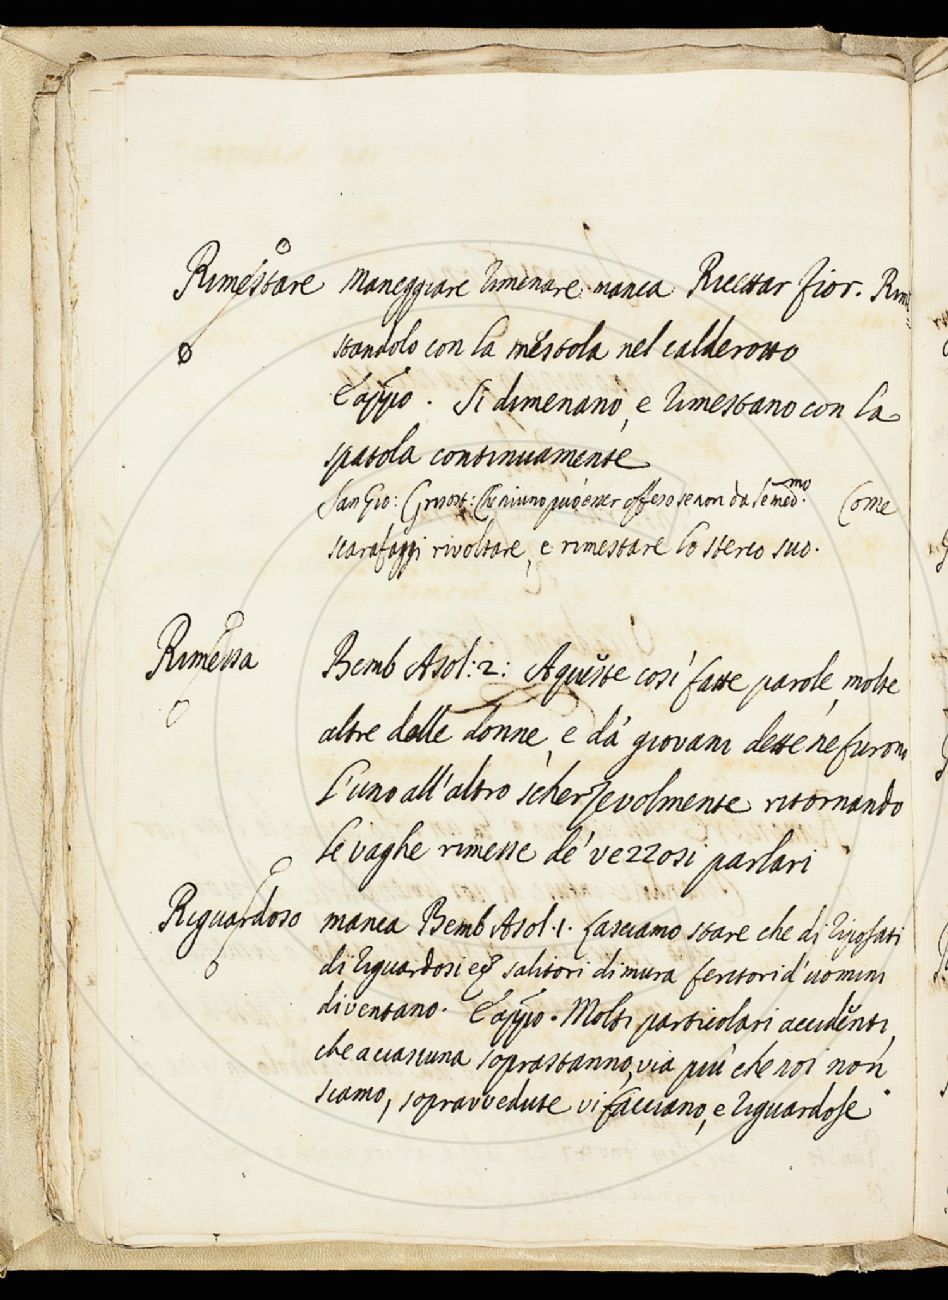 Rimestare maneggiare rimenare manca Ricettar fior. Rime
standolo con la mestola nel calderotto
E appo. Si dimenano, e rimestano con la
spatola continuamente
San Gio: Grisost: Che niuno può esser offeso se non da se med.mo Come
scarafaggi rivoltare, e rimestare lo sterco suo.
Rimessa Bemb Asol: 2: A queste così fatte parole, molte
altre delle donne, e dà giovani dette ne furono
l'uno all'altro scherzevolmente ritornando
le vaghe rimesse de' vezzosi parlari
Riguardoso manca Bemb Asol. 1. lasciamo stare che di riposati
di riguardosi eg salitori di mura feritori d'uomini
diventano. E appo. Molti particolari accidenti,
che a ciascuna soprastanno, via più che noi non
siamo, sopravvedute vi facciano, e riguardose